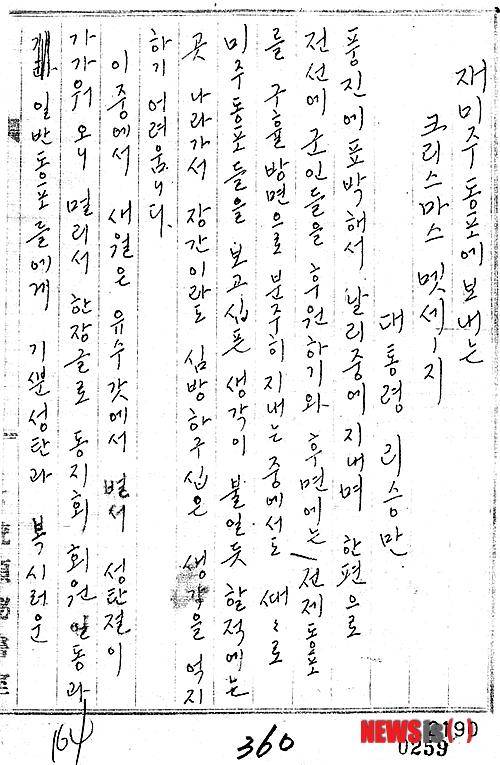 재미주동포에보내는
크리스마스 멧세ㅡ지
대통령 리승만
풍진에표박해서 날리중에지내며 한편으로
전선에 군인들을 후원하기와 후면에는 전제동포
를 구휼방면으로 분주히 지내는 중에서도 때ㅅ로
미주동포들을 보고십픈 생각이 불일듯 할적에는
곳 나라가서 장간이라도 심방하구십은 생각을 억지
하기 어려움니다.
이중에서 새월은 유수갓에서 벌서 성탄절이
가가워오니 멀리서 한장글로 동지회 회원 일동과
일반동포들에게 기쁜성탄과 복시러운
164
360
NEWSIS
190
0259